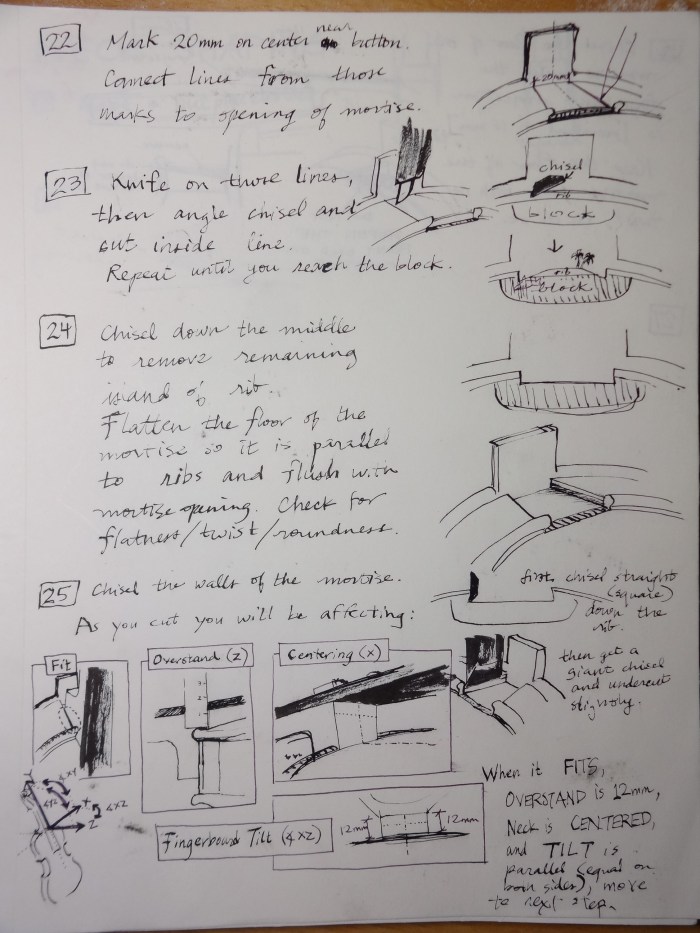 22
Mark 20mm on center near button.
Connect lines from those
marks to opening of mortise.
20mm
23
Knife on those lines,
then angle chisel and
cut inside line.
Repeat until you reach the block.
chisel
rib
block
rib
block
24
Chisel down the middle
to remove remaining
island of rib.
Flatten the floor of the
mortise so it is parallel
to ribs and flush with
mortise opening. Check for
flatness/twist/roundness.
25
Chisel the walls of the mortise.
As you cut you will be affecting:
first, chisel straight
(square)
down the
rib.
then get a
giant chisel
and undercut
slightly.
Fit
Overstand (z)
Centering (x)
Fingerboard Tilt (∡ xz)
12mm
12mm
∡XY
∡YZ
∡XZ
Y
X
Z
When it FITS,
OVERSTAND is 12mm,
Neck is CENTERED,
and TILT is
parallel (equal on
both sides), move
to next step.